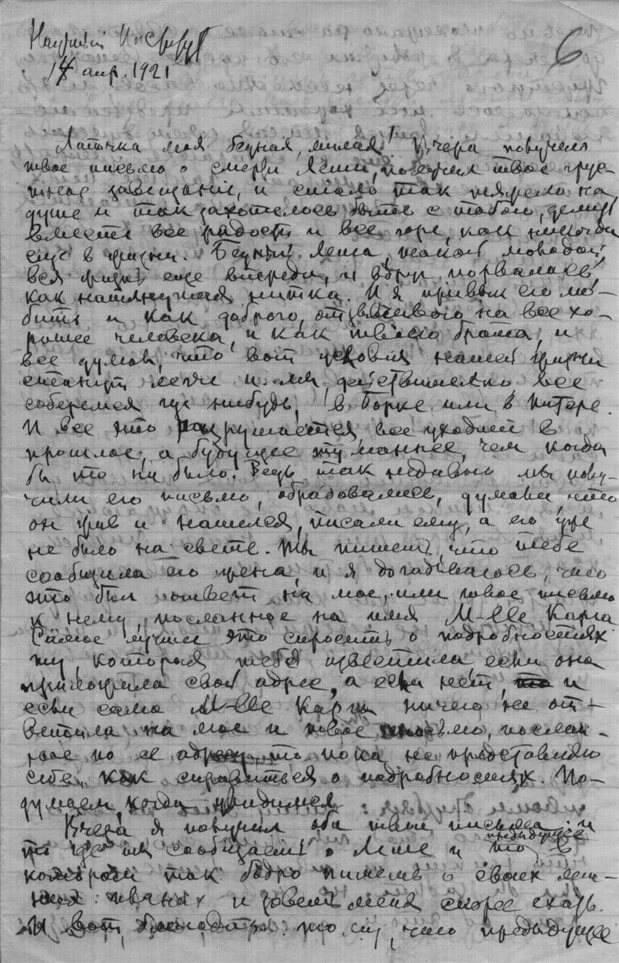 Научный Институт
14 апр. 1921
6
Лапочка моя бедная, милая! Вчера получил
твое письмо о смерти Леши, получил твое грус-
тное завещание, и стало так тяжело на
душе и так захотелось быть с тобою, делить
вместе все радости и все горе, как никогда
еще в жизни. Бедный Леша, такой молодой,
вся жизнь еще впереди, и вдруг порвалась
как натянутая нитка. И я привык его лю-
бить и как доброго, отзывчивого на все хо-
рошее человека, и как твоего брата, и
все думал, что вот условия нашей жизни
станут легче и мы действительно все
соберемся где нибудь, в Борке или в Питере.
И все это разрушается, все уходит в
прошлое, а будущее туманнее, чем когда
бы то ни было. Ведь так недавно мы полу-
чили его письмо, обрадовались, думали что
он жив и нашелся, писали ему, а его уже
не было на свете. Ты пишешь, что тебе
сообщила его жена, и я догадываюсь, что
это был ответ на мое, или твое письмо
к нему, посланное на имя M-lle Карга
Самое лучшее это спросить о подробностях
ту, которая тебя известила если она
приложила свой адрес, а если нет, и
если сама M-lle Карга ничего не от-
ветила на мое и твое письмо, послан-
ное по ее адресу, то пока не представляю
себе, как справиться о подробностях. По-
думаем, когда увидимся.
Вчера я получил оба твои письма и
то где ты сообщаешь о Леше и то предыдущее в
котором так бодро пишешь о своих лет-
них планах и зовешь меня скорее ехать.
И вот, благодаря тому, что предыдущее